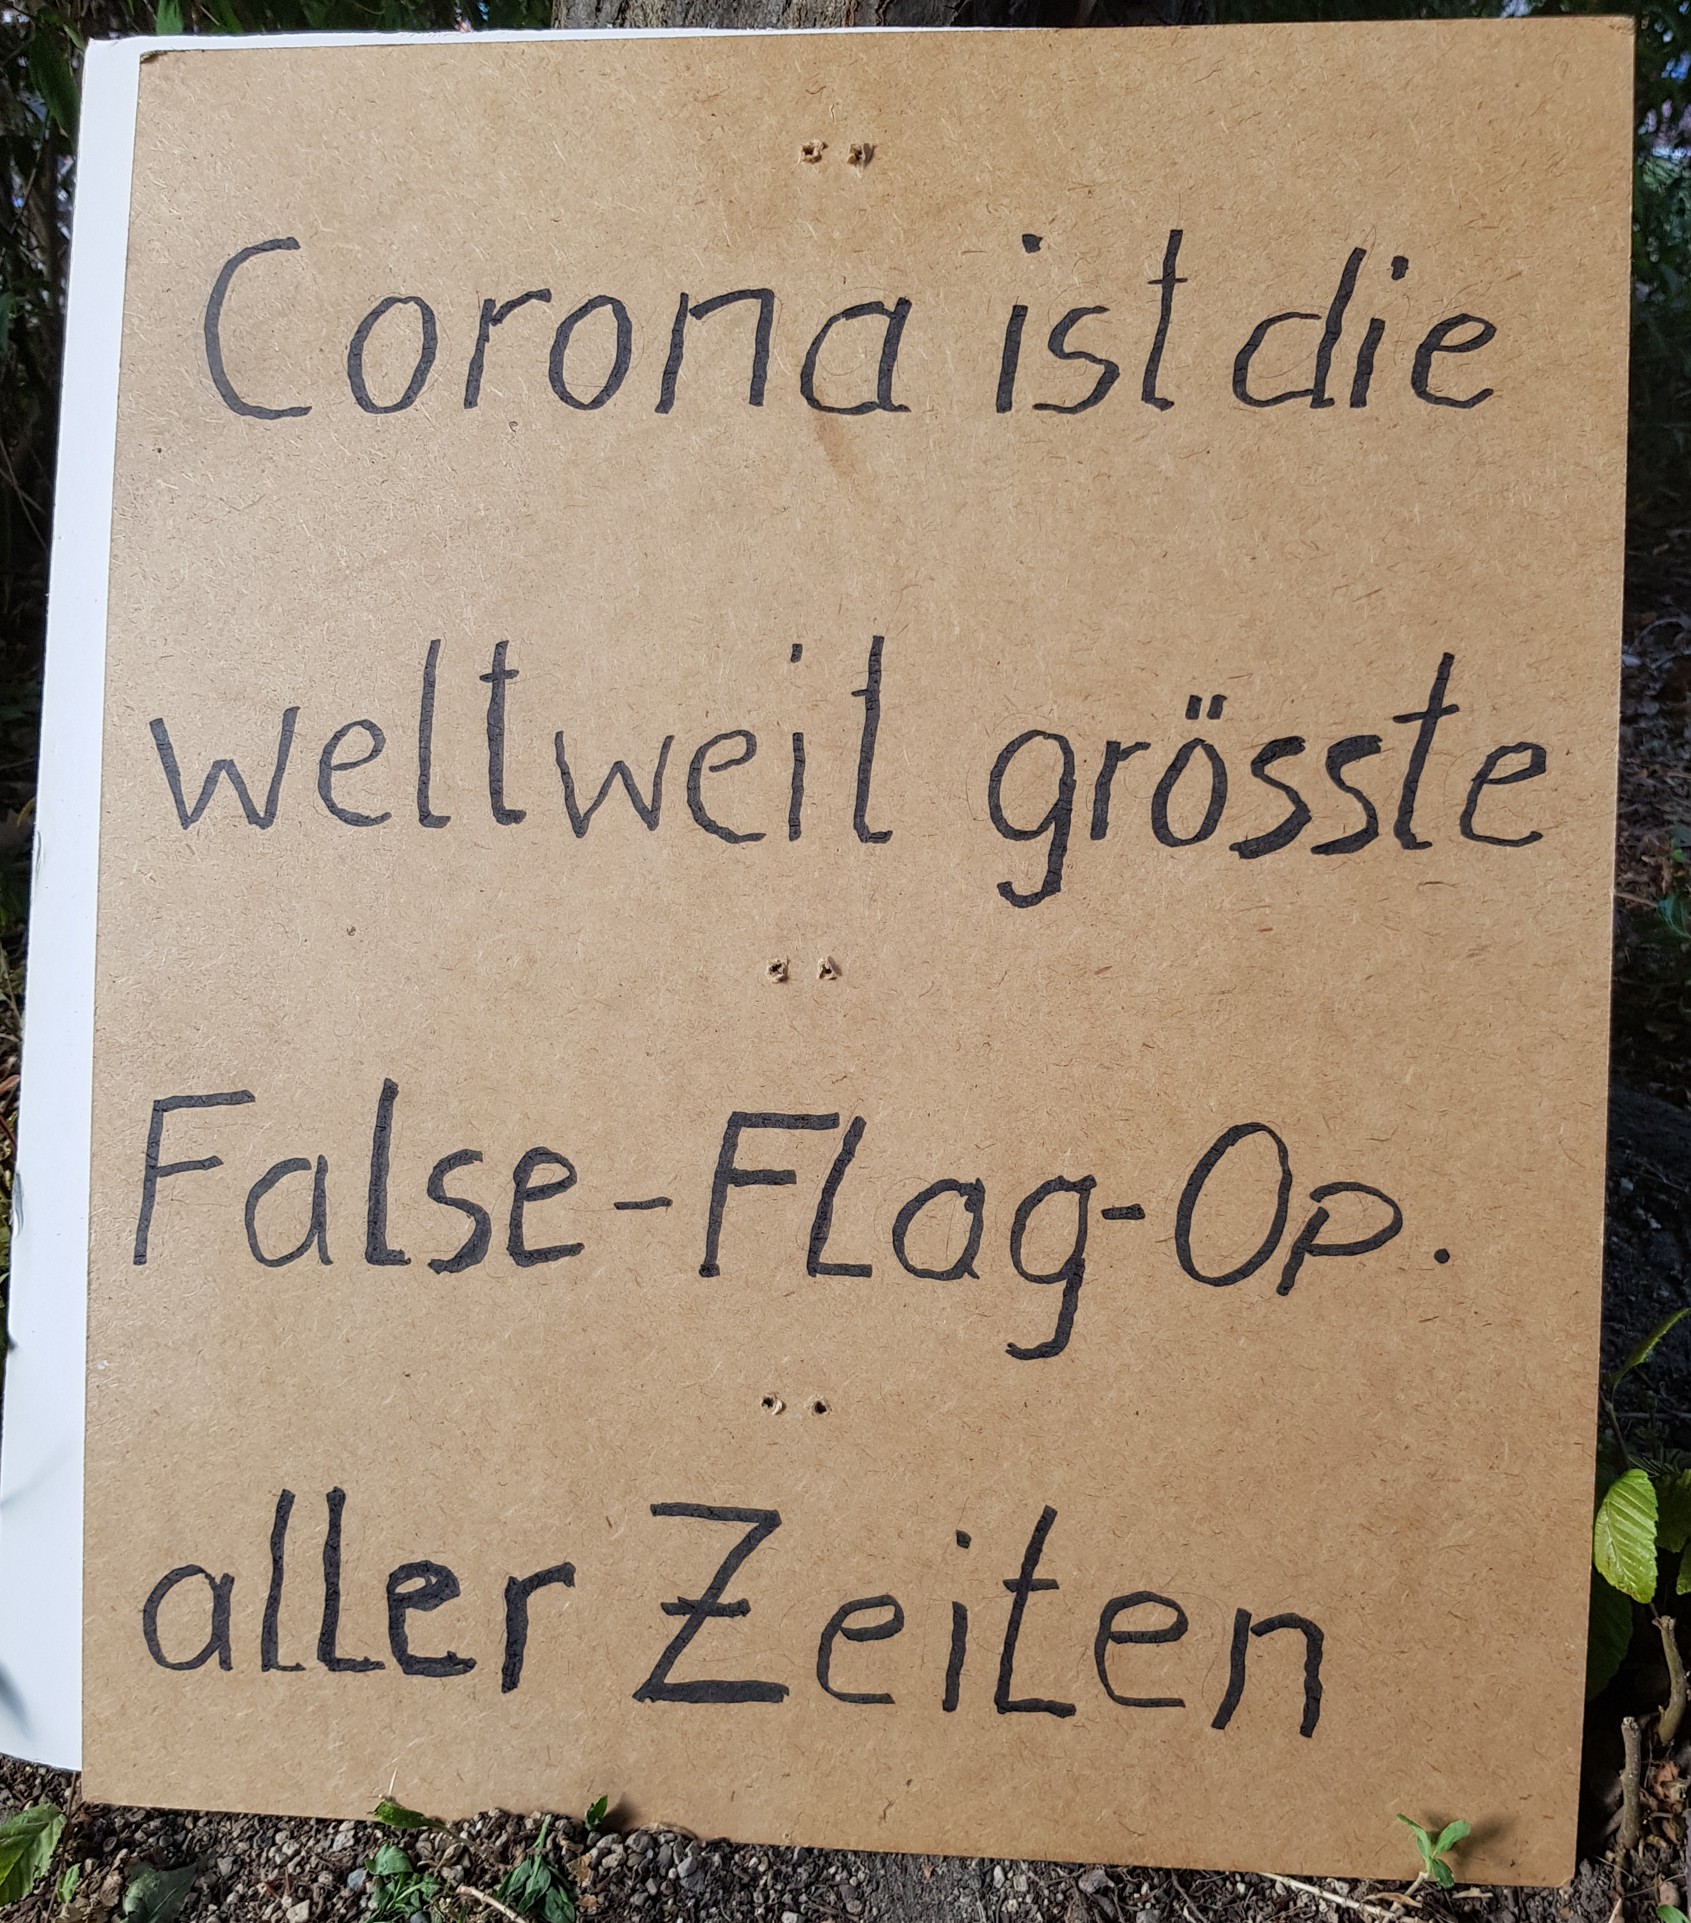 Corona ist die
weltweit grösste
False-Flag-Op.
aller Zeiten